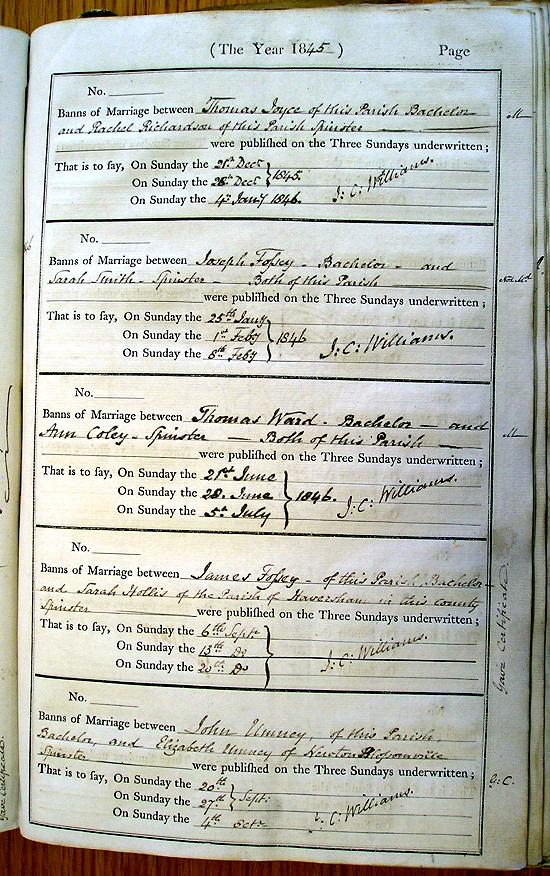 (The Year 1845) Page
No.
Banns of Marriage between Thomas Joyce of this Parish Bachelor
and Rachel Richardson of this Parish Spinster
were published on the Three Sundays underwritten;
That is to say, On Sunday the 21st Decr
On Sunday the 28th Decr 1845.
On Sunday the 4th Jany 1846.
J: C: Williams.
M
No.
Banns of Marriage between Joseph Fossey - Bachelor - and
Sarah Smith - Spinster - Both of this Parish
were published on the Three Sundays underwritten;
That is to say, On Sunday the 25th Jany
On Sunday the 1st Feby 1846
On Sunday the 8th Feby
J: C: Williams.
Not Md
No.
Banns of Marriage between Thomas Ward - Bachelor - and
Ann Coley - Spinster - Both of this Parish -
were published on the Three Sundays underwritten;
That is to say, On Sunday the 21st June
On Sunday the 28. June 1846.
On Sunday the 5th July
J: C: Williams.
M
No.
Banns of Marriage between James Fossey - of this Parish, Bachelor
and Sarah Hollis of the Parish of Haversham in this County
Spinster were published on the Three Sundays underwritten;
That is to say, On Sunday the 6th Septr
On Sunday the 13th Do
On Sunday the 20th Do
J: C: Williams.
Gave Certificate.
No.
Banns of Marriage between John Umney, of this Parish,
Bachelor, and Elizabeth Umney of Newton Blosomville
Spinster were published on the Three Sundays underwritten;
That is to say, On Sunday the 20th
On Sunday the 27th Sept:
On Sunday the 4th Octr
J: C: Williams.
G: C.
Gave Certificate.